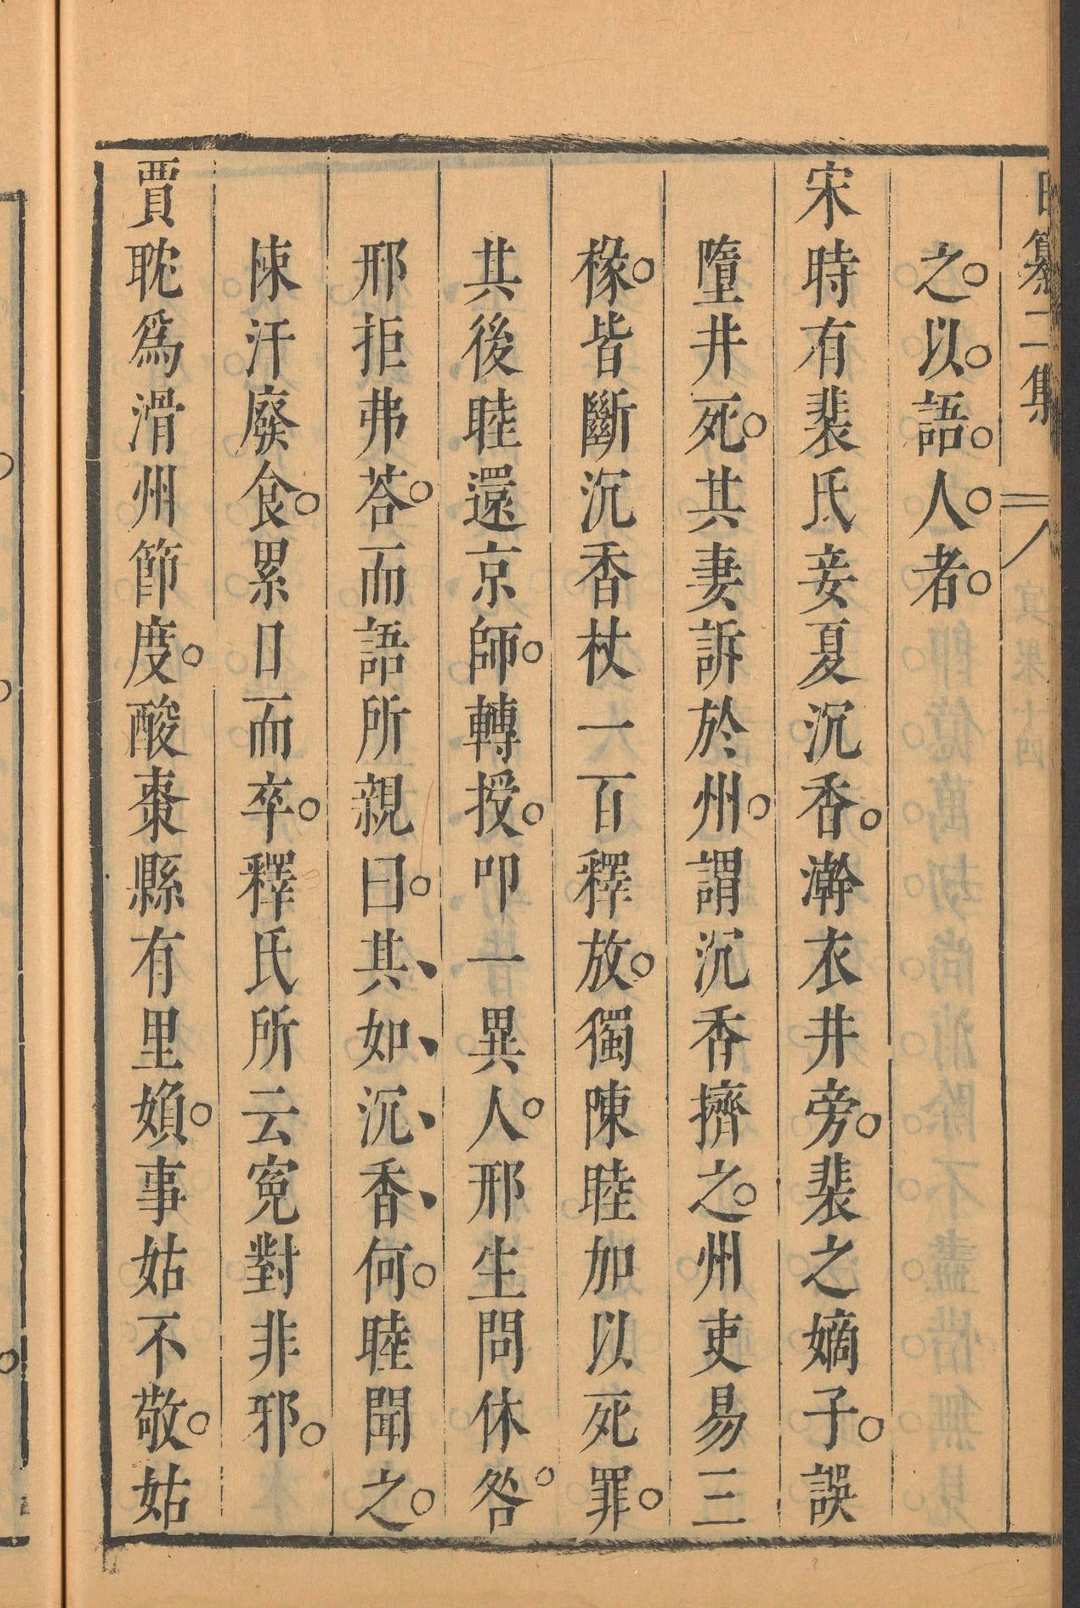 纂二集
之以語人者
宋時有裴氏妾夏沉香澣衣井旁裴之嫡子誤
墮井死其妻訴於州謂沉香擠之州吏易三
椽皆斷沉香杖一百釋放獨陳睦加以死罪
其後睦還京師轉授叩一異人邢生問休咎
邢拒弗荅而語所親曰其如沉香何睦聞之
悚汗廢食累日而卒釋氏所云寃對非邪
賈耽爲滑州節度酸棗縣有里媍事姑不敬姑